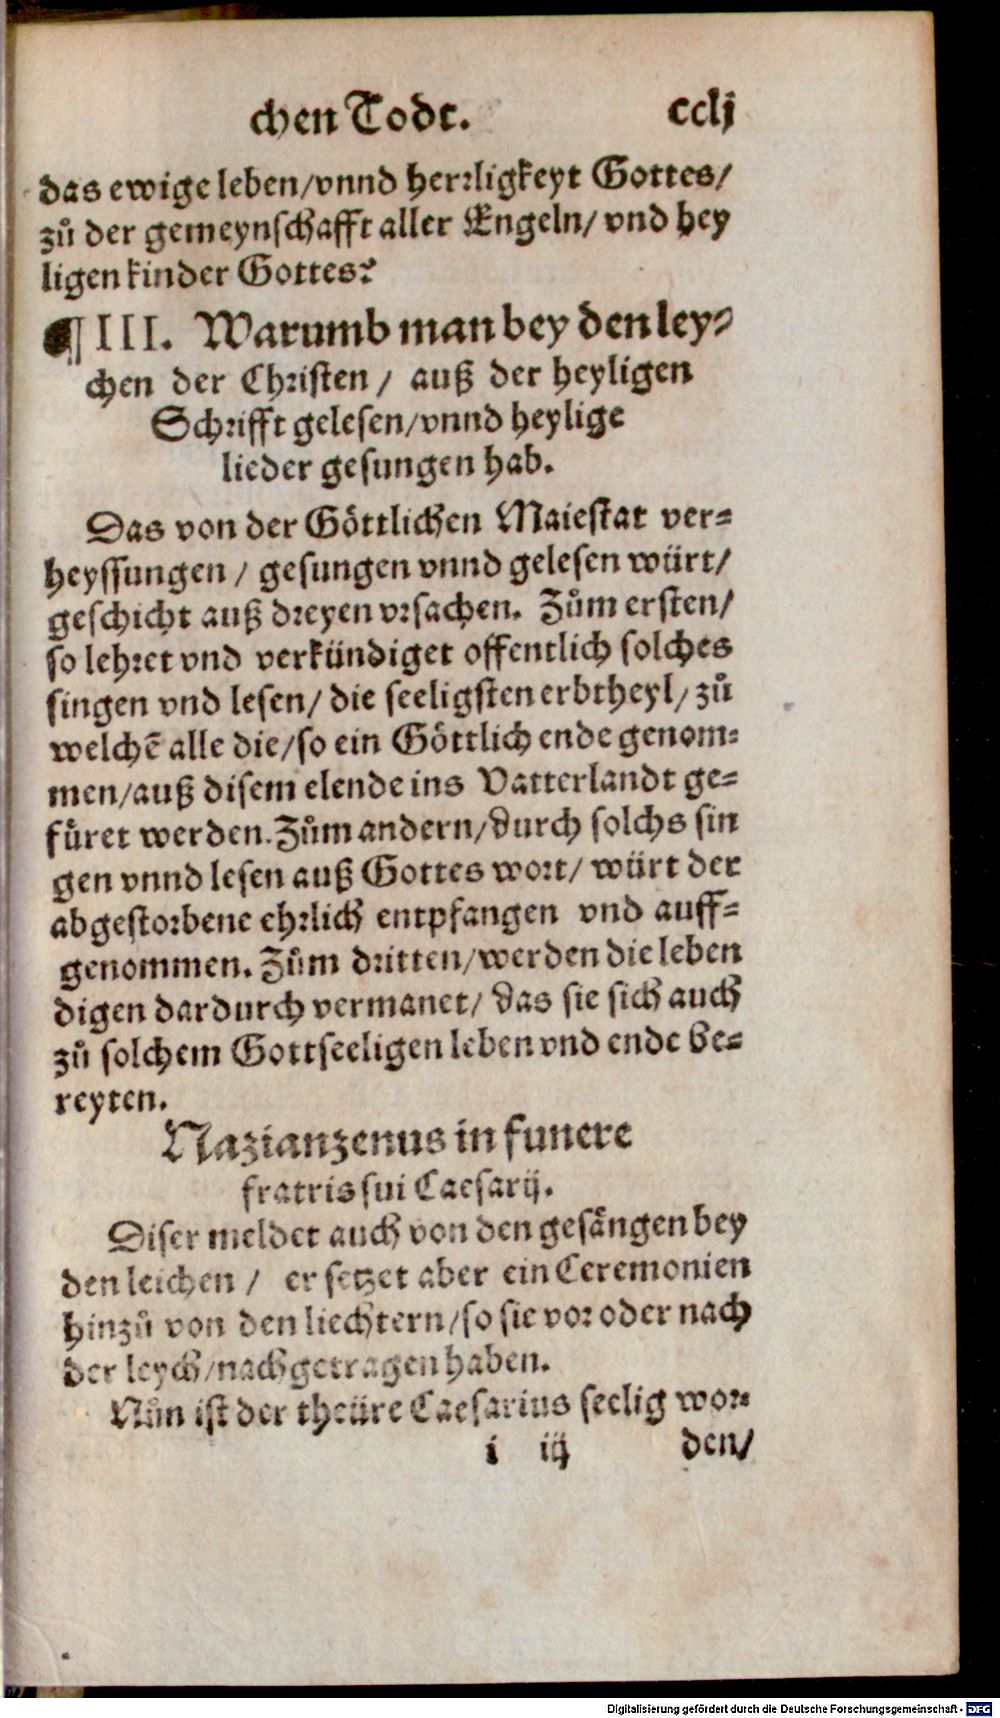 chen Todt. cclj
das ewige leben/vnnd herrligkeyt Gottes/
zů der gemeynschafft aller Engeln/ vnd hey
ligen kinder Gottes?
¶ III. Warumb man bey den ley-
chen der Christen / auß der heyligen
Schrifft gelesen/vnnd heylige
lieder gesungen hab.
Das von der Göttlichen Maiestat ver-
heyssungen / gesungen vnnd gelesen würt/
geschicht auß dreyen vrsachen. Zům ersten/
so lehret vnd verkündiget offentlich solches
singen vnd lesen/ die seeligsten erbtheyl/ zů
welchē alle die/so ein Göttlich ende genom-
men/auß disem elende ins Vatterlandt ge-
füret werden. Zům andern/durch solchs sin
gen vnnd lesen auß Gottes wort/ würt der
abgestorbene ehrlich entpfangen vnd auff-
genommen. Zům dritten/werden die leben
digen dardurch vermanet/ das sie sich auch
zů solchem Gottseeligen leben vnd ende be-
reyten.
Nazianzenus in funere
fratris sui Caesarij.
Diser meldet auch von den gesängen bey
den leichen / er setzet aber ein Ceremonien
hinzů von den liechtern/so sie vor oder nach
der leych/nachgetragen haben.
Nůn ist der theüre Caesarius seelig wor-
i iij den/
Digitalisierung gefördert durch die Deutsche Forschungsgemeinschaft - DFG